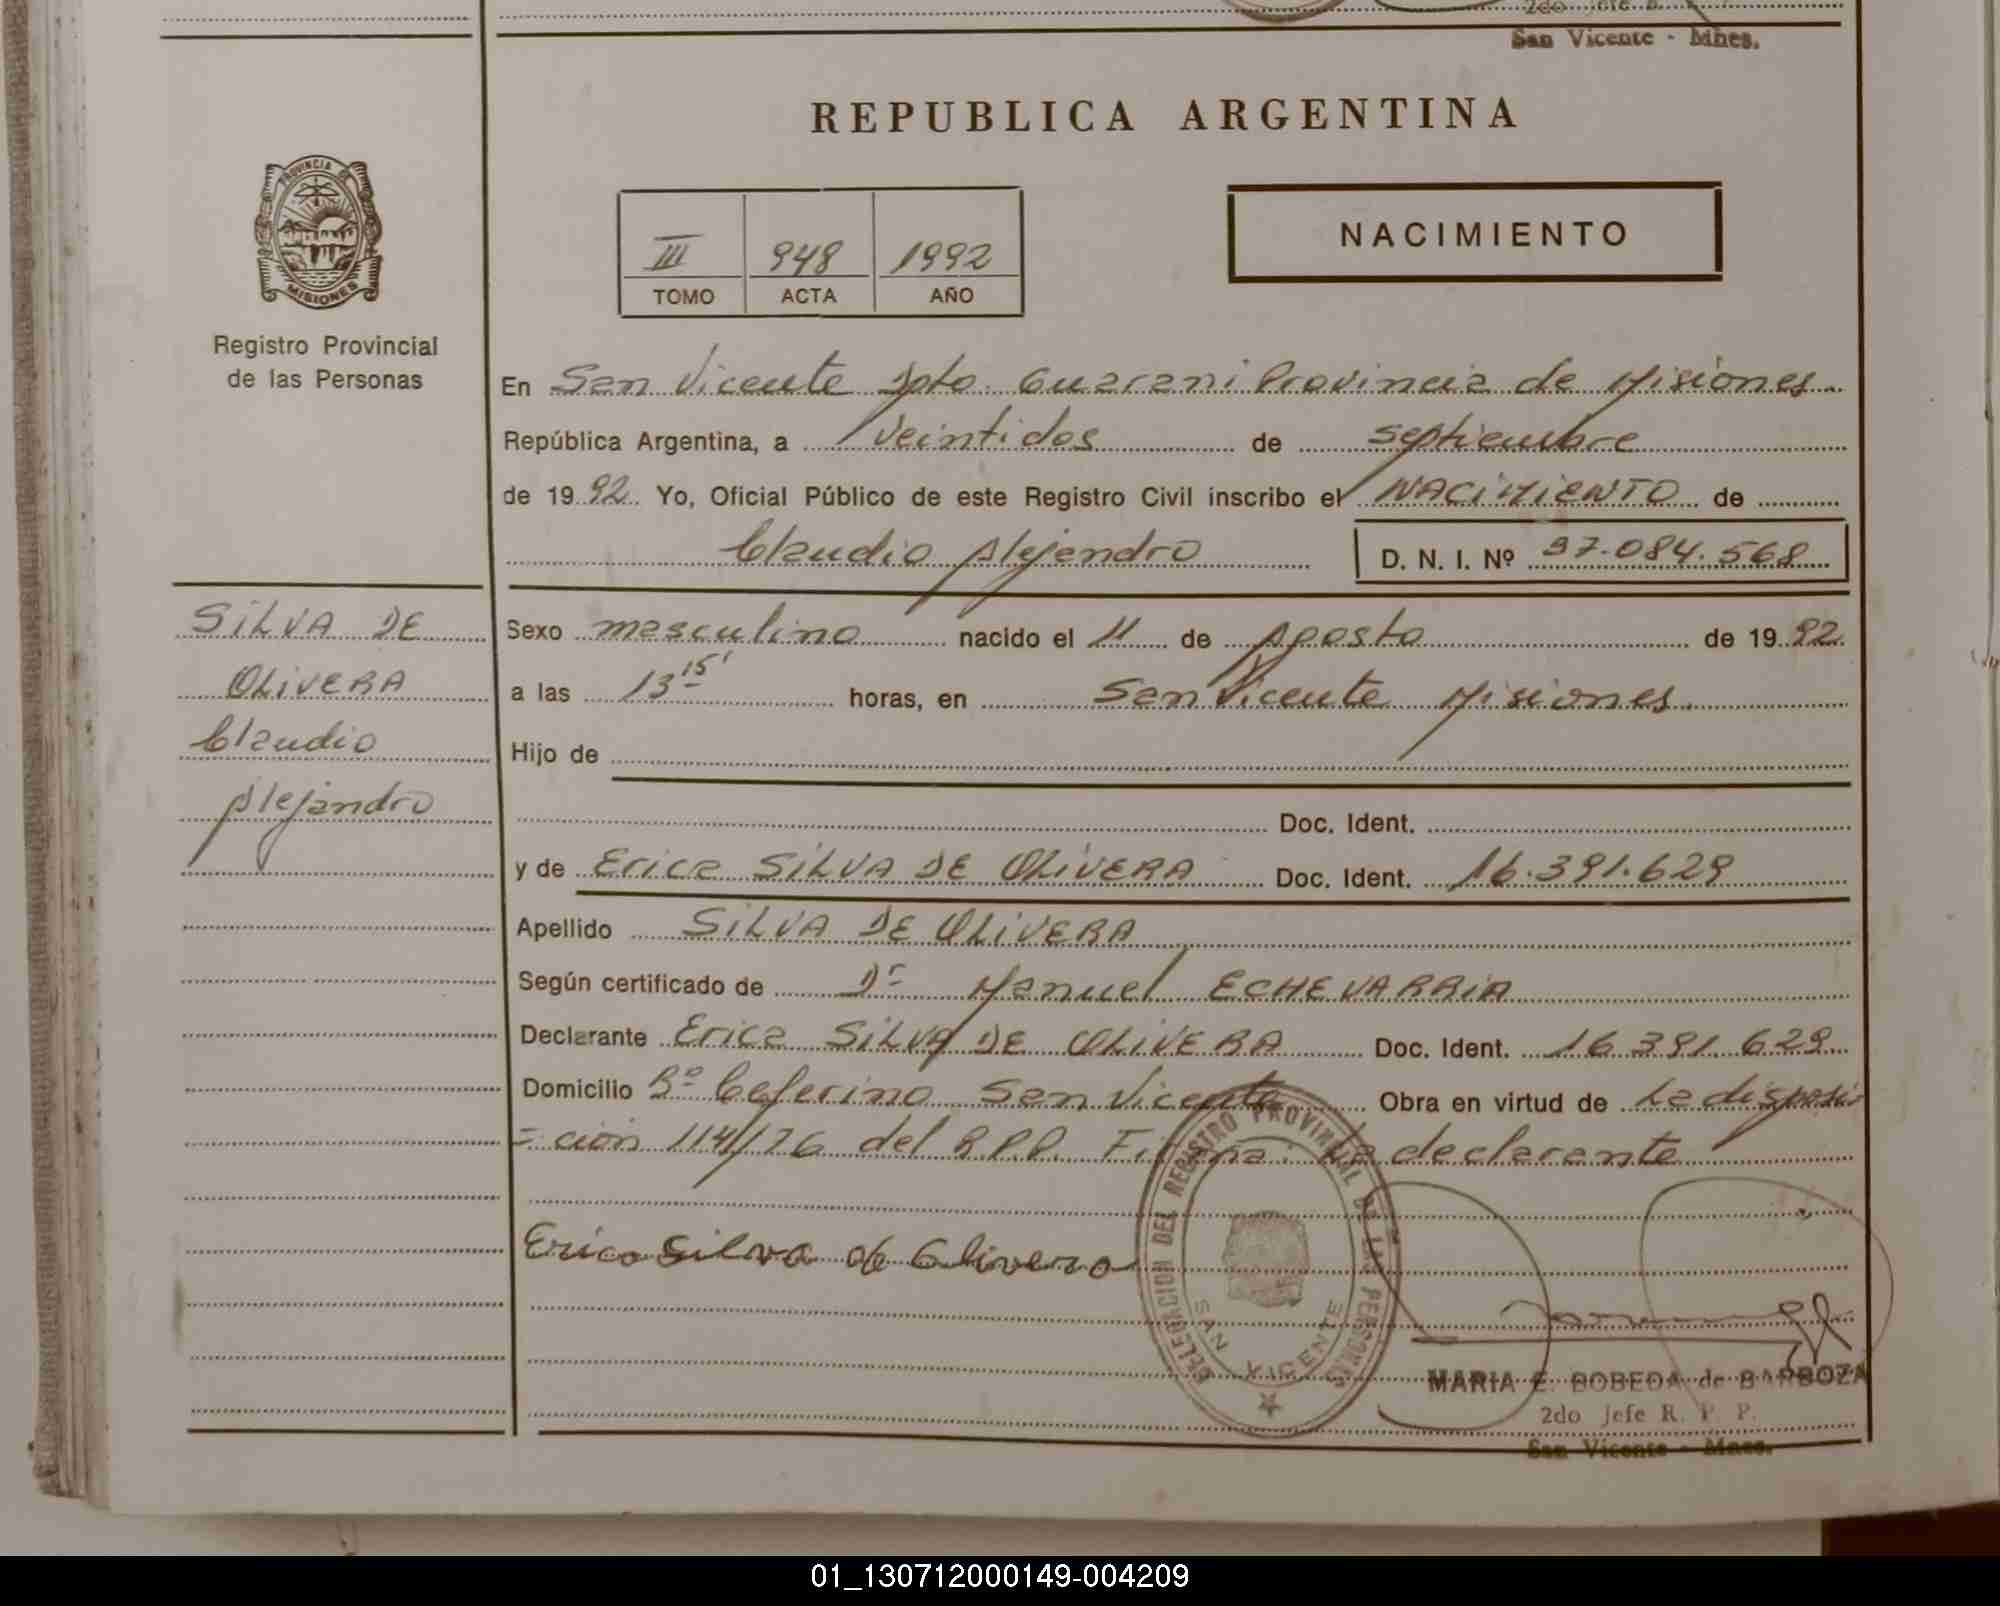 2do Jefe R.
San Vicente - Mnes.
REPUBLICA ARGENTINA
PROVINCIA DE
MISIONES
III 948 1992
TOMO ACTA AÑO
NACIMIENTO
Registro Provincial
de las Personas
En San Vicente Dpto. Guarani Provincia de Misiones.
República Argentina, a Veintidos de septiembre
de 1992. Yo, Oficial Público de este Registro Civil inscribo el NACIMIENTO de
Claudio Alejandro D. N. I. Nº 37.084.568
SILVA DE
OLIVERA
Claudio
Alejandro
Sexo masculino nacido el 11 de Agosto de 1992.
a las 13 15' horas, en San Vicente Misiones.
Hijo de
Doc. Ident.
y de Erica SILVA DE OLIVERA Doc. Ident. 16.391.629
Apellido SILVA DE OLIVERA
Según certificado de Dr Manuel ECHEVARRIA
Declarante Erica SILVA DE OLIVERA Doc. Ident. 16 391. 629
Domicilio Bº Ceferino San Vicente Obra en virtud de La disposi
= ción 114/76 del R.P.P. Firma: La declarante
Erica Silva de Olivera
DELEGACION DEL REGISTRO PROVINCIAL DE LAS PERSONAS
SAN VICENTE
MARIA E. BOBEDA de BARBOZA
2do Jefe R. P. P.
San Vicente - Mnes.
01_130712000149-004209